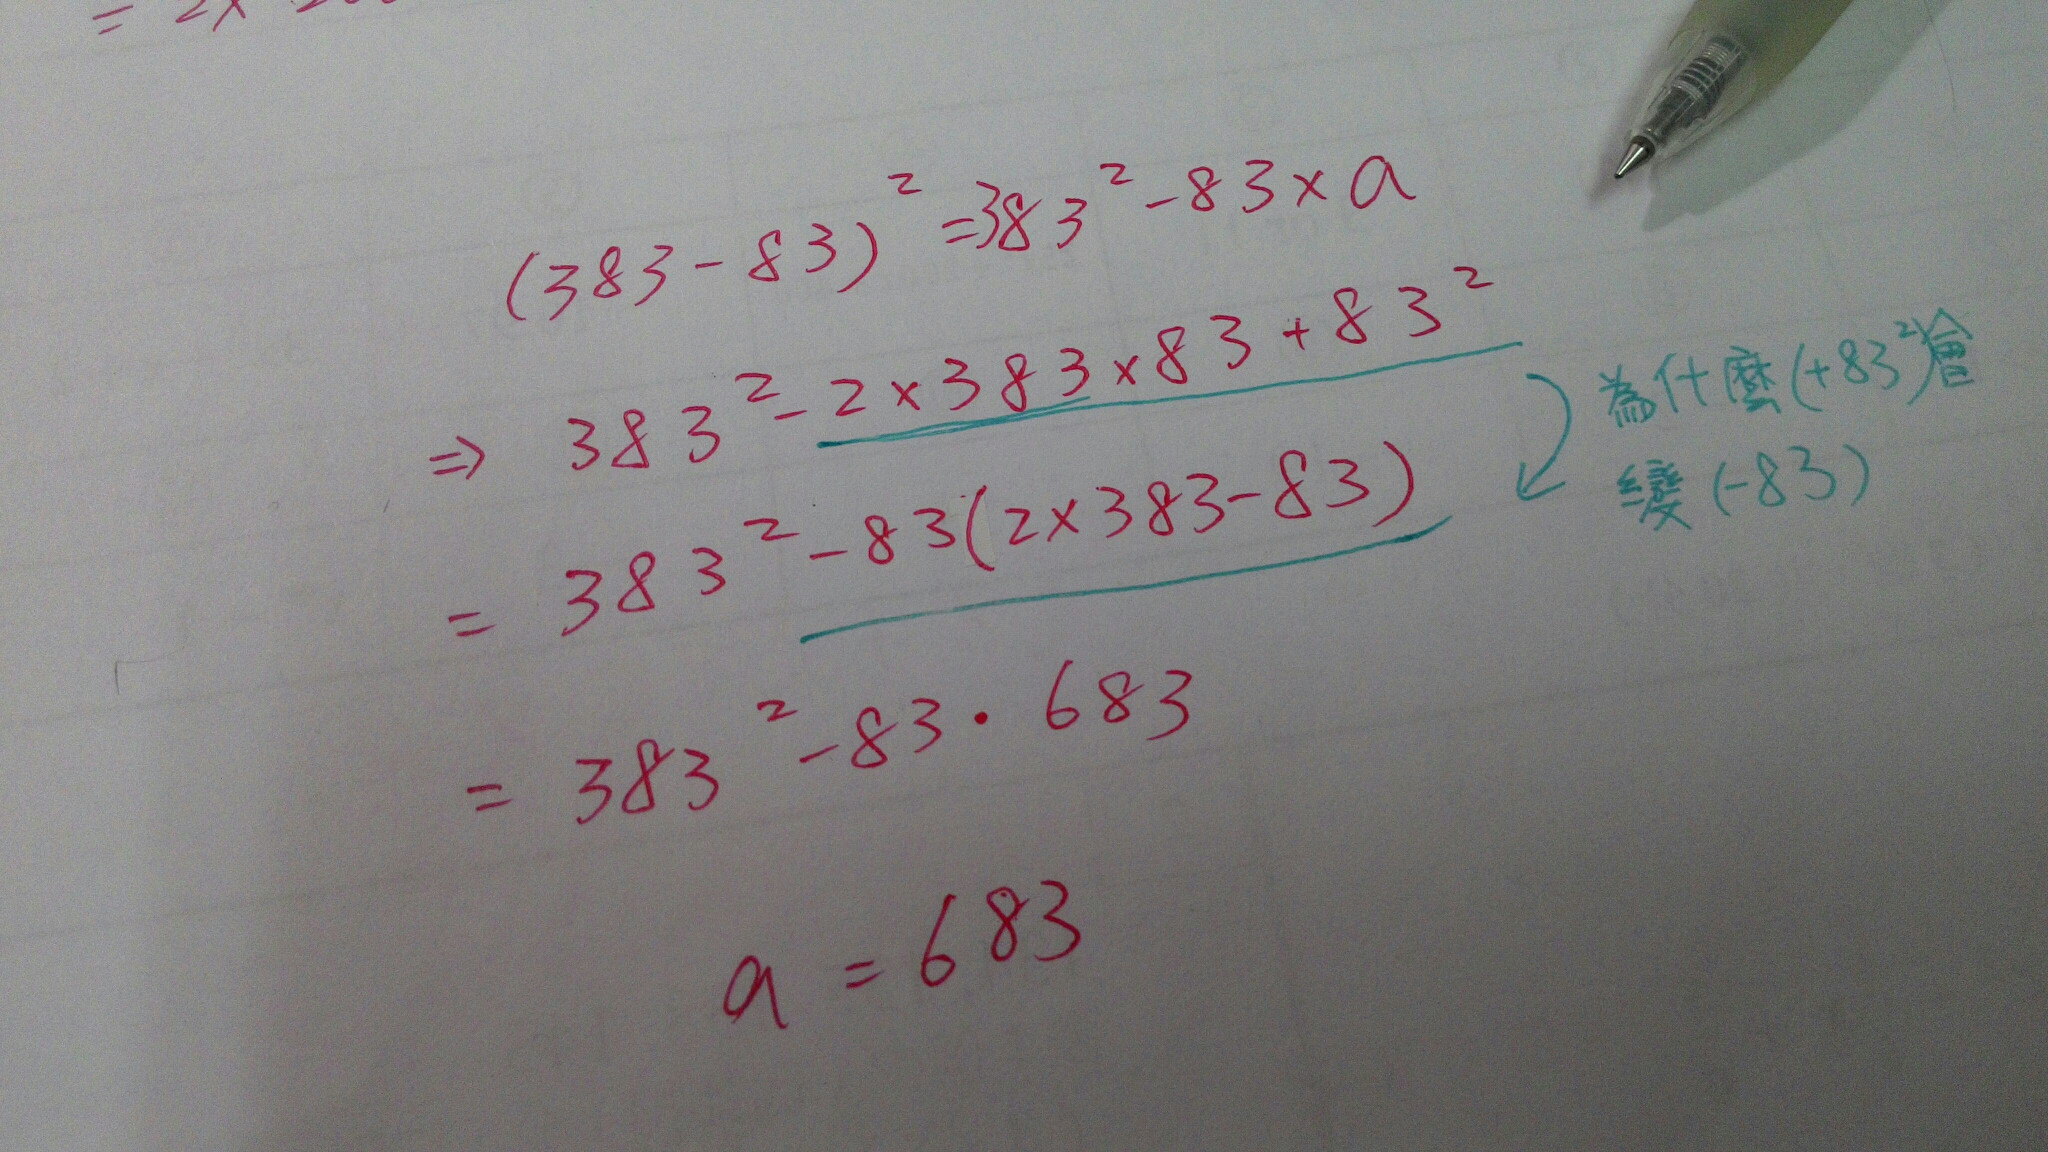 = 2×
(383-83)² =383²-83×a
⇒ 383²-2×383×83+83²
為什麼(+83²)會
變(-83)
= 383²-83(2×383-83)
= 383²-83·683
a = 683